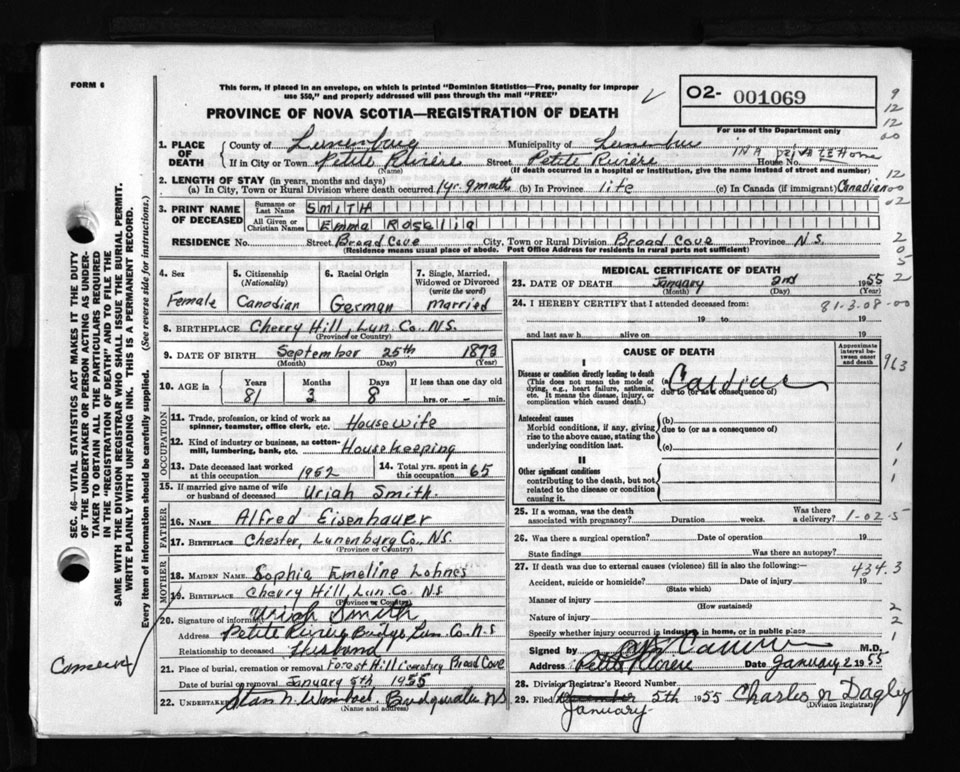 FORM 6
This form, if placed in an envelope, on which is printed "Dominion Statistics—Free, penalty for improper
use $50," and properly addressed will pass through the mail "FREE"
PROVINCE OF NOVA SCOTIA—REGISTRATION OF DEATH
O2- 001069
For use of the Department only
9
12
12
00
1. PLACE OF DEATH
County of Lunenburg Municipality of
If in City or Town Petite Riviere Street Petite Riviere House No. IN A PRIVATE Home
(Name) (If death occurred in a hospital or institution, give the name instead of street and number)
12
2. LENGTH OF STAY (in years, months and days)
(a) In City, Town or Rural Division where death occurred 1 yr. 9 mnths (b) In Province life (c) In Canada (if immigrant) Canadian 00
02
3. PRINT NAME OF DECEASED
Surname or Last Name SMITH
All Given or Christian Names Emma Rosellila
RESIDENCE No. Street Broad Cove City, Town or Rural Division Broad Cove Province N.S.
(Residence means usual place of abode. Post Office Address for residents in rural parts not sufficient)
2
0
5
2
4. Sex Female
5. Citizenship (Nationality) Canadian
6. Racial Origin German
7. Single, Married, Widowed or Divorced (write the word) Married
8. BIRTHPLACE Cherry Hill, Lun. Co. N.S.
(Province or Country)
9. DATE OF BIRTH September 25th 1873
(Month) (Day) (Year)
10. AGE in Years 81 Months 3 Days 8 If less than one day old hrs. or - min.
OCCUPATION
11. Trade, profession, or kind of work as spinner, teamster, office clerk, etc. Housewife
12. Kind of industry or business, as cotton-mill, lumbering, bank, etc. Housekeeping
13. Date deceased last worked at this occupation 1952 14. Total yrs. spent in this occupation 65
15. If married give name of wife or husband of deceased Uriah Smith.
FATHER
16. NAME Alfred Eisenhauer
17. BIRTHPLACE Chester, Lunenburg Co., N.S.
(Province or Country)
MOTHER
18. MAIDEN NAME Sophia Emeline Lohnes
19. BIRTHPLACE Cherry Hill, Lun. Co. N.S
(Province or Country)
20. Signature of informant Uriah Smith
Address Petite Riviere Lun. Co. N.S
Relationship to deceased Husband
21. Place of burial, cremation or removal Forest Hill Cemetery Broad Cove
Date of burial or removal January 5th 1955
22. Undertaker Bridgewater NS
(Name and address)
MEDICAL CERTIFICATE OF DEATH
23. DATE OF DEATH January 2nd 1955
(Month) (Day) (Year)
24. I HEREBY CERTIFY that I attended deceased from: 81-3-08-00
19 to 19
and last saw h alive on 19
CAUSE OF DEATH
Approximate interval between onset and death
963
I
Disease or condition directly leading to death
(This does not mean the mode of dying, e.g., heart failure, asthenia, etc. It means the disease, injury, or complication which caused death.)
(a) Cardiac
due to (or as a consequence of)
Antecedent causes
Morbid conditions, if any, giving rise to the above cause, stating the underlying condition last.
(b)
due to (or as a consequence of)
(c)
II
Other significant conditions
contributing to the death, but not related to the disease or condition causing it.
1
1
1
25. If a woman, was the death associated with pregnancy? Duration weeks. Was there a delivery? 1-02-5
26. Was there a surgical operation? Date of operation 19
State findings Was there an autopsy?
27. If death was due to external causes (violence) fill in also the following:— 434.3
Accident, suicide or homicide? Date of injury 19
(State which)
Manner of injury
(How sustained)
2
Nature of injury
2
Specify whether injury occurred in industry in home, or in public place
1
Signed by M.D.
Address Petite Riviere Date January 2 1955
28. Division Registrar's Record Number
29. Filed January 5th 1955 Charles N Dagley
(Division Registrar)
SEC. 46—VITAL STATISTICS ACT MAKES IT THE DUTY
OF THE UNDERTAKER OR PERSON ACTING AS UNDER-
TAKER TO OBTAIN ALL THE PARTICULARS REQUIRED
IN THE "REGISTRATION OF DEATH" AND TO FILE THE
SAME WITH THE DIVISION REGISTRAR WHO SHALL ISSUE THE BURIAL PERMIT.
WRITE PLAINLY WITH UNFADING INK. THIS IS A PERMANENT RECORD.
Every item of information should be carefully supplied. (See reverse side for instructions.)